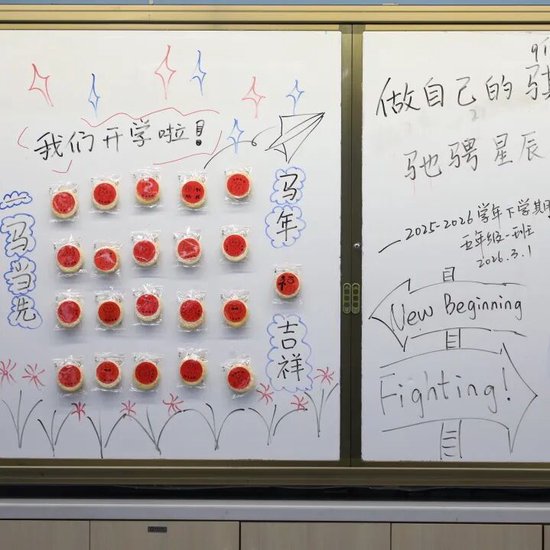 我们开学啦!
一马当先
马年
吉祥
做自己的
驰骋星辰
2025-2026学年下学期
五年级一班
2026.3.1
New Beginning
Fighting!